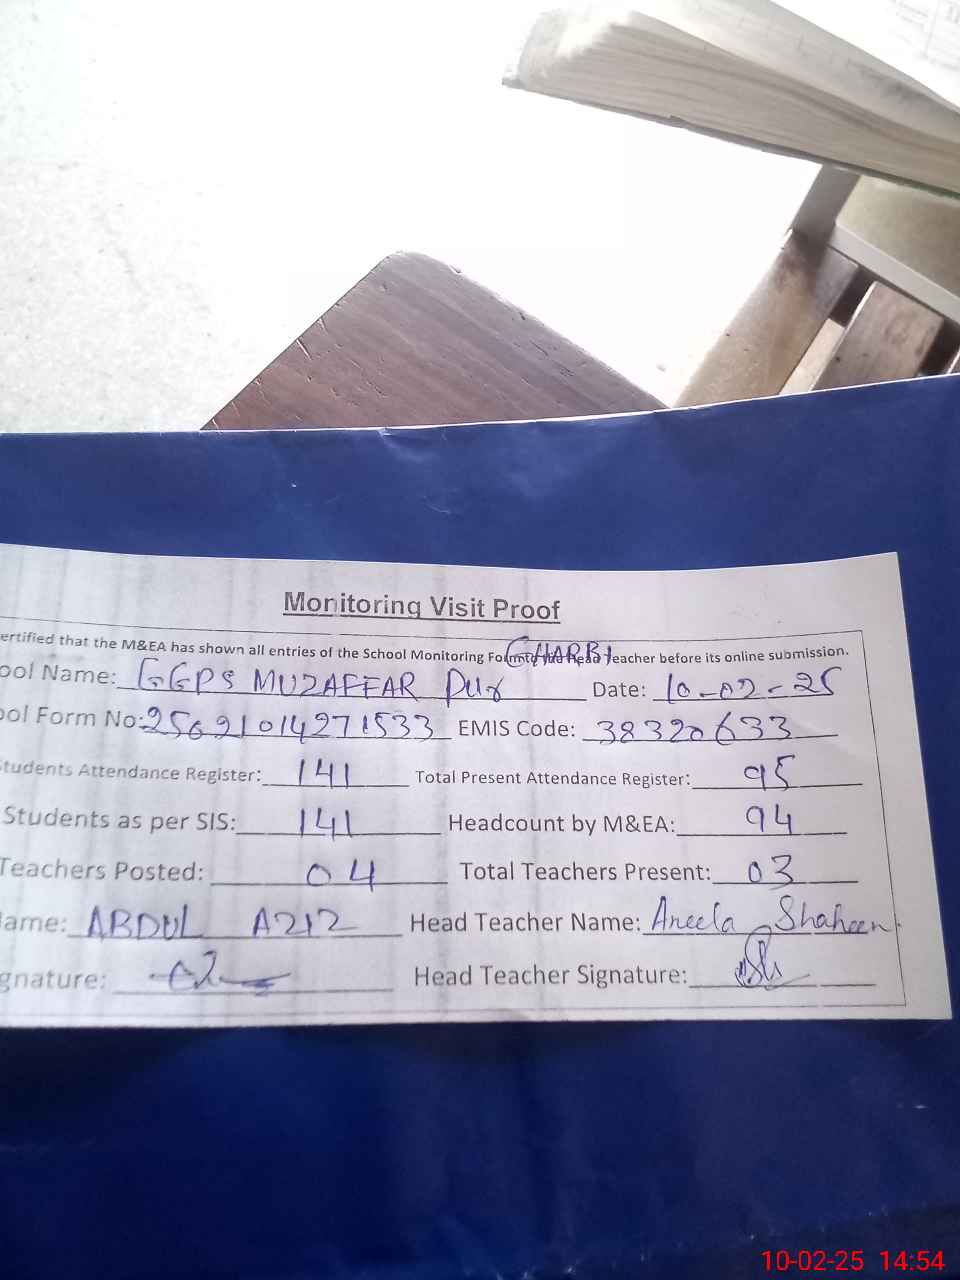 Monitoring Visit Proof
ertified that the M&EA has shown all entries of the School Monitoring Form to the Head Teacher before its online submission.
GHARBI
ool Name: GGPS MUZAFFAR PUR Date: 10-02-25
ool Form No: 25021014271533 EMIS Code: 38320633
tudents Attendance Register: 141 Total Present Attendance Register: 95
Students as per SIS: 141 Headcount by M&EA: 94
Teachers Posted: 04 Total Teachers Present: 03
ame: ABDUL AZIZ Head Teacher Name: Aneela Shaheen
gnature: Head Teacher Signature:
10-02-25 14:54